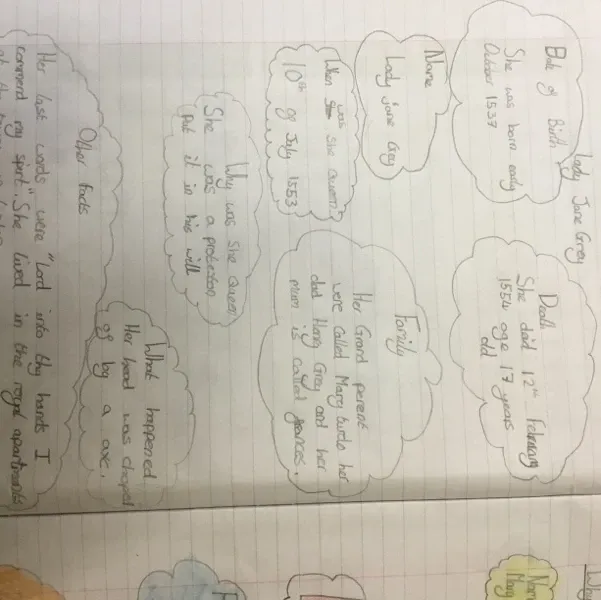 Lady Jane Grey
Date of Birth
She was born early
October 1537
Death
She daid 12th February
1554 age 17 years
old
Name
Lady Jane Grey
When was she Queen?
10th of July 1553
Family
Her Grand perent
were called Mary her
dad Hary Grey and her
mum is called frances.
Why was she Queen
She was a protestan
put it in his will
What happened
Her head was choped
of by a axe.
Other facts
Her last words were "Lord into thy hands I
commend my spirt". She lived in the royal apartments
Name
Mary